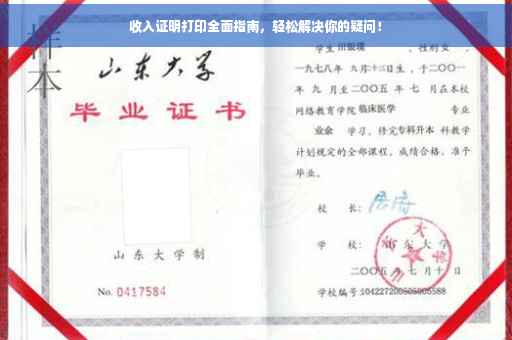 收入证明打印全面指南，轻松解决你的疑问！
样本
山东大学
毕业证书
山东大学制
No. 0417584
学生 田银璞 ，性别女，
一九七八年 九月十三日生，于二〇〇一
年 九 月至二〇〇五 年 七 月在本校
网络教育学院 临床医学 专业
业余 学习，修完专科升本 科教学
计划规定的全部课程，成绩合格，准予
毕业。
校 长：
学 校： 山东大学
二〇〇五 年 七 月 十 日
学校编号:104227200505005588